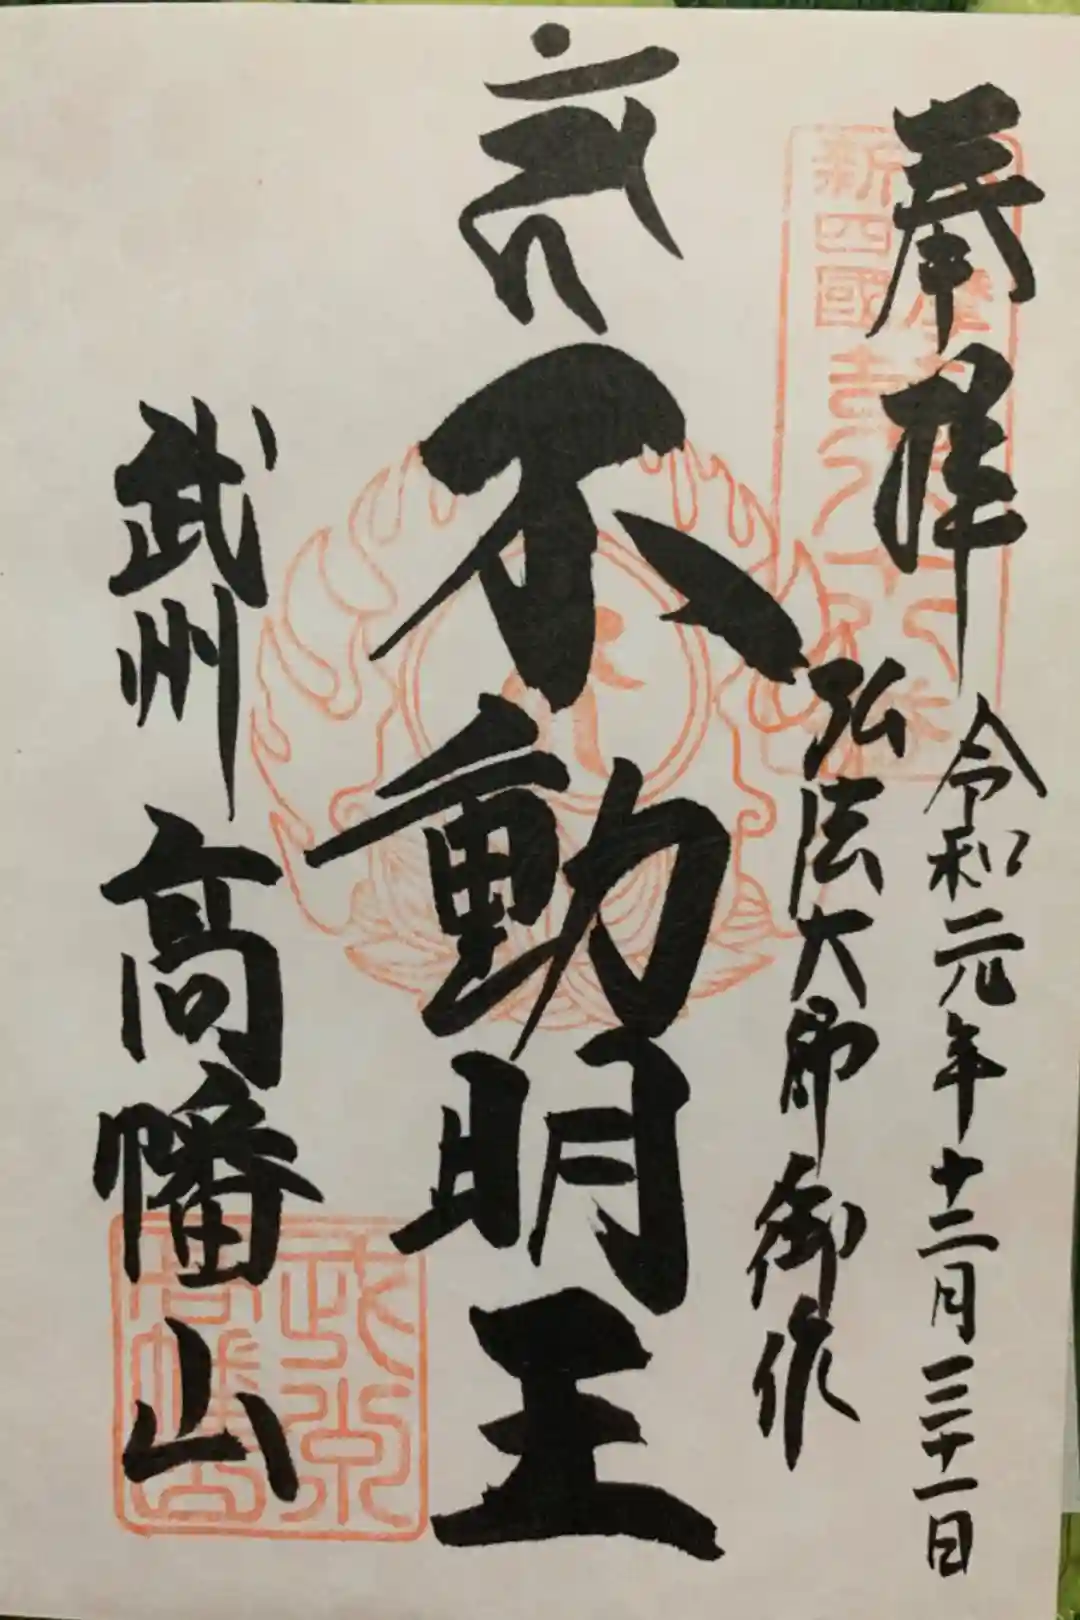 奉拝
令和元年十二月三十一日
弘法大師御作
不動明王
武州
高幡山
新四國
武州
高幡山